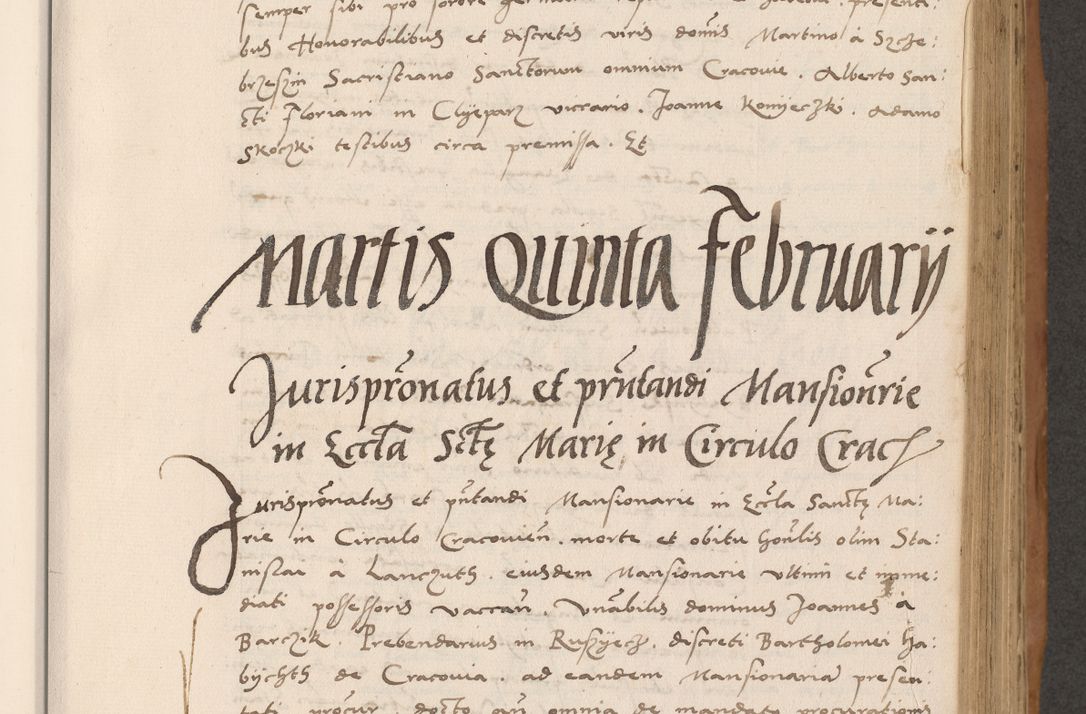 semper sibi pro sorore
bus Honorabilibus et discretis viris domīs Martino à Szcze:
brzeszin Sacristiano Sanctorum omnium Cracovie . Alberto San:
cti Floriani in Clyeparz viccario . Joanne Konyeczki . Adamo
Skoczki testibus circa premissa . Et
Martis Quinta Februarij
Jurisprōnatus et prn̄tandi Mansionr̄ie
in Eccl̄a Sct̄ę Marię in Circulo Crac̄
Jurisprōnatus et pn̄tandi Mansionarie in Eccl̄a Sanctę Ma:
rie in Circulo Cracovień . morte et obitu honl̄is olim Sta:
nislai à Lanczuth . eiusdem Mansionarie ultimi et imme:
diati possessoris vaccań . Vnābilis dominus Joannes à
Barczik . Prebendarius in Ruszyecz . discreti Bartholomei Ha:
bychth de Cracovia . ad eandem Mansionariā presen:
tati procur̄ . docto on̄ omnia de mandato procurationis